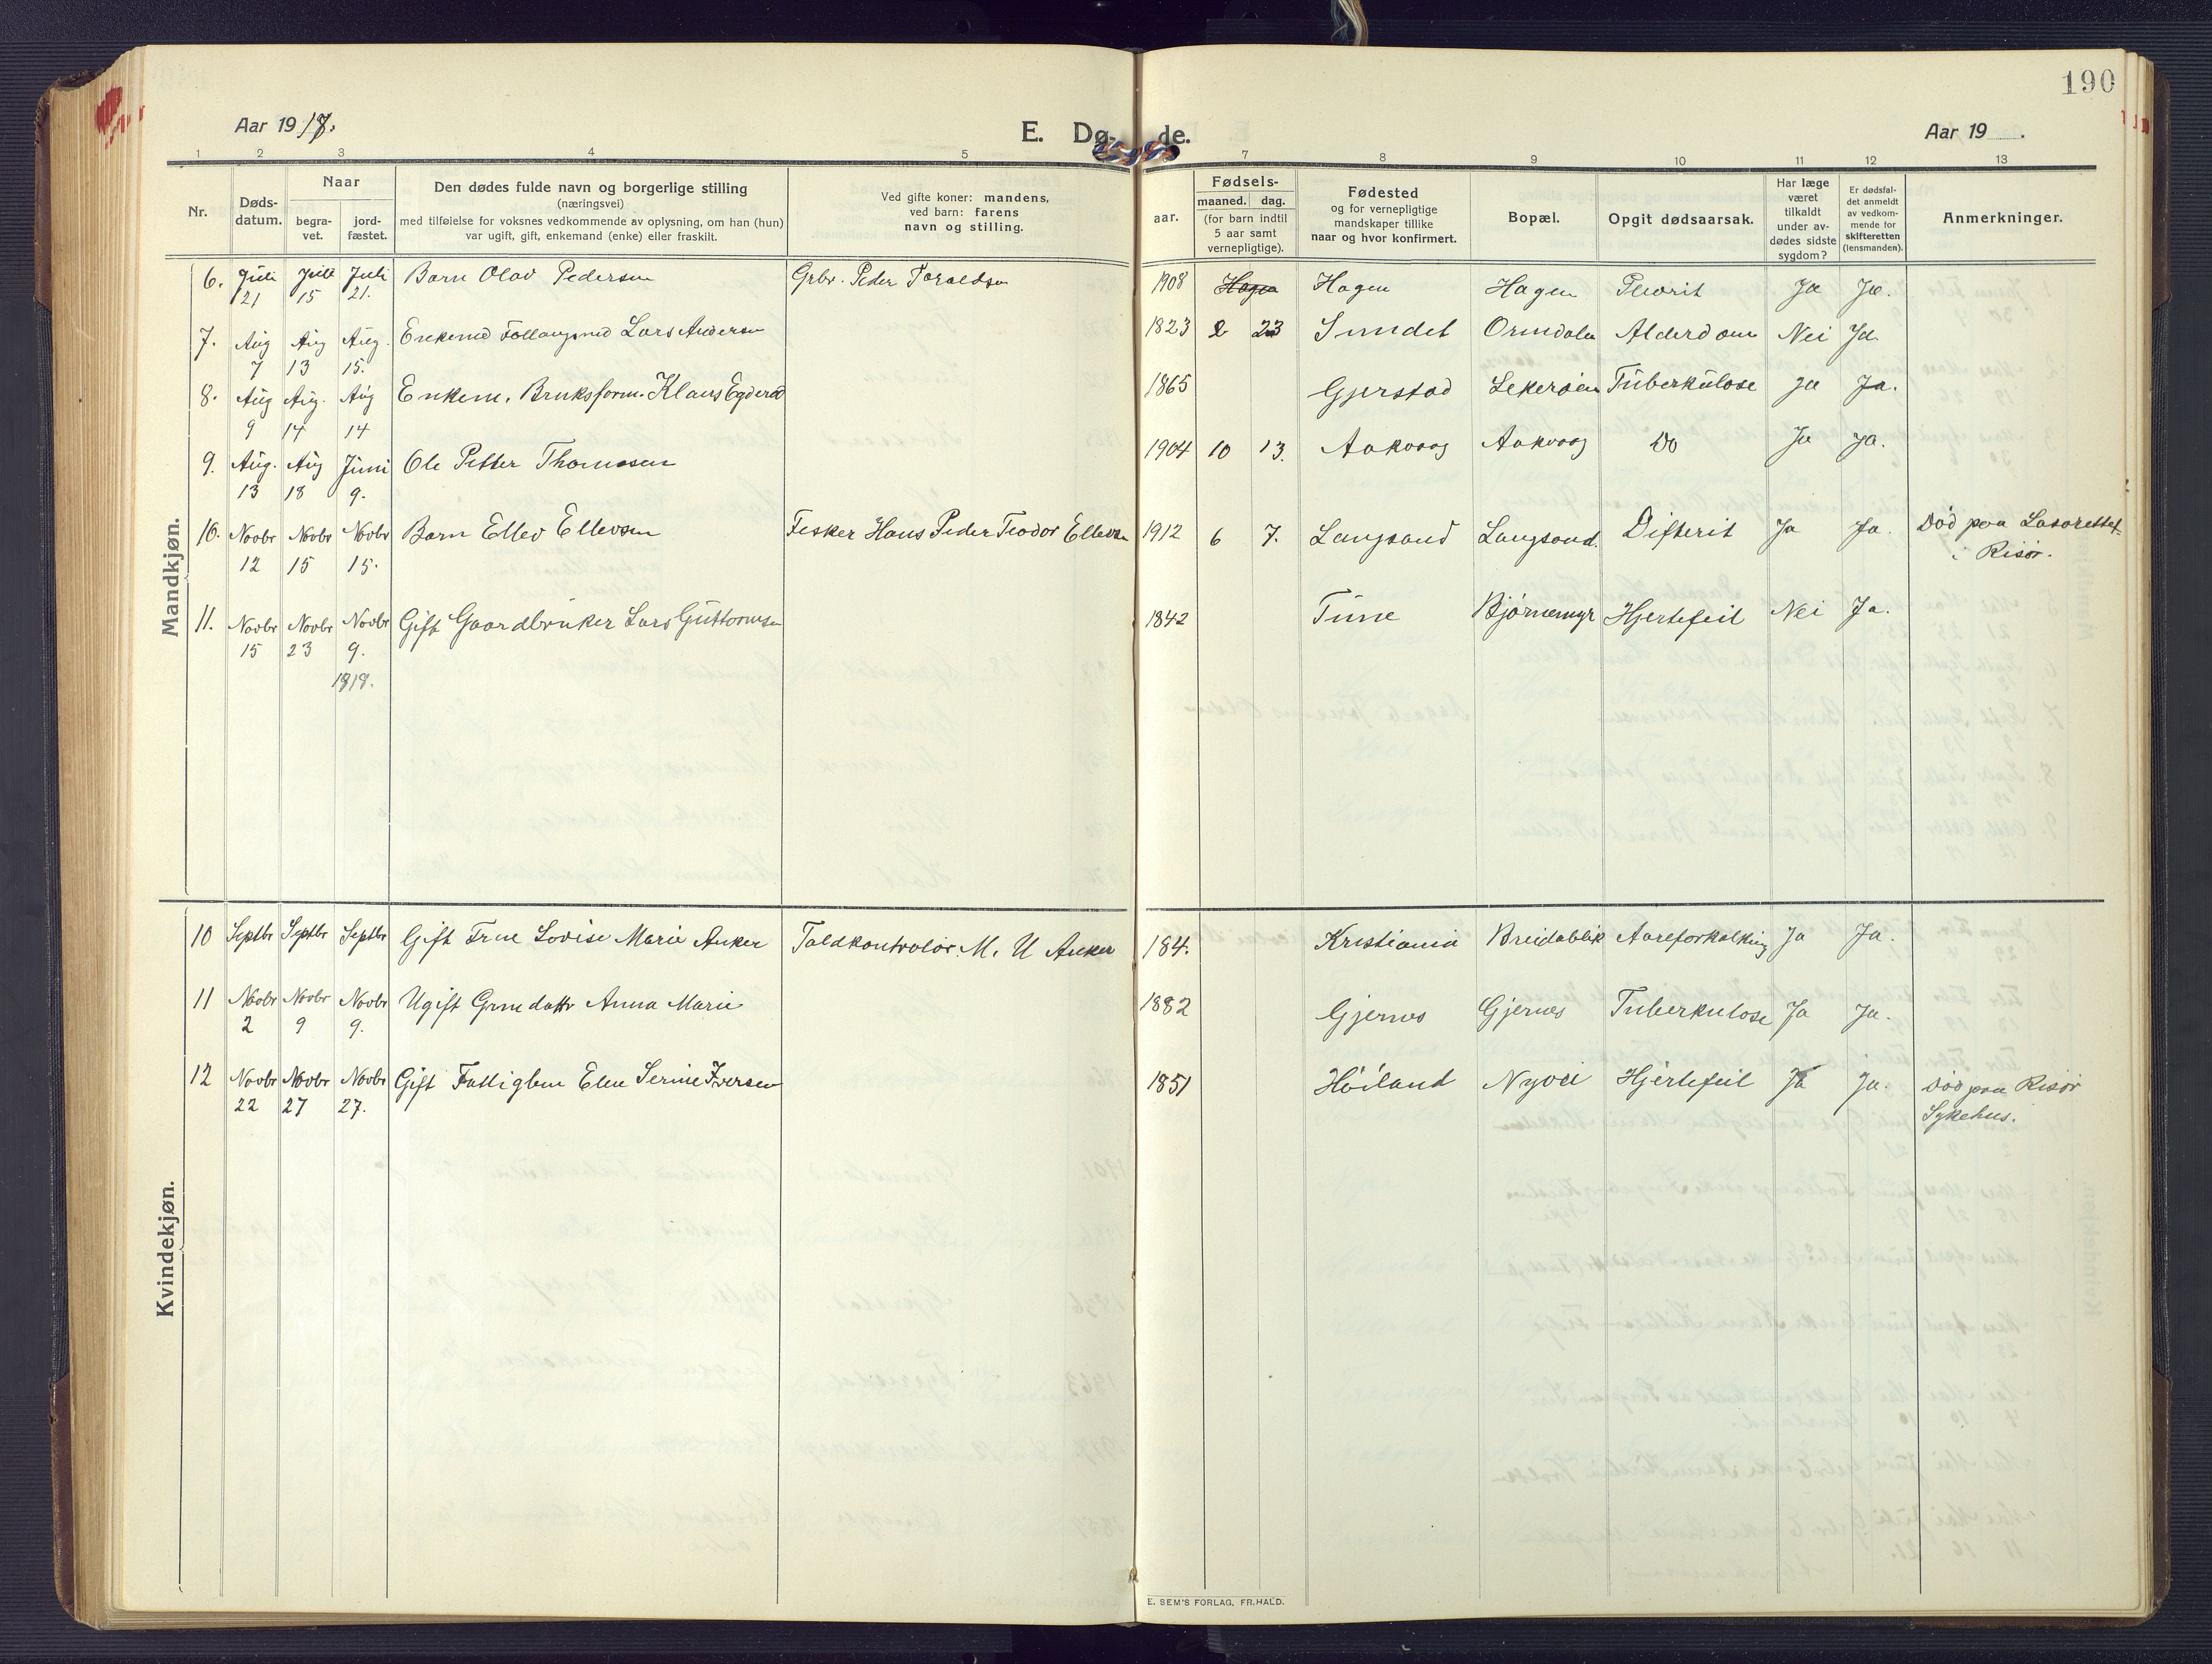 190
Aar 1917.
E. Dø-
de.
Aar 19 .
1 2 3 4 5 7 8 9 10 11 12 13
Nr.
Døds-
datum.
Naar
begra-
vet.
jord-
fæstet.
Den dødes fulde navn og borgerlige stilling
(næringsvei)
med tilføielse for voksnes vedkommende av oplysning, om han (hun)
var ugift, gift, enkemand (enke) eller fraskilt.
Ved gifte koner: mandens,
ved barn: farens
navn og stilling.
Fødsels-
aar.
maaned. dag.
(for barn indtil
5 aar samt
vernepligtige).
Fødested
og for vernepligtige
mandskaper tillike
naar og hvor konfirmert.
Bopæl.
Opgit dødsaarsak.
Har læge
været
tilkaldt
under av-
dødes sidste
sygdom?
Er dødsfal-
det anmeldt
av vedkom-
mende for
skifteretten
(lensmanden).
Anmerkninger.
Mandkjøn.
6. Juli Juli Juli Barn Olav Pedersen Grbr. Peder Toraldsen 1908 Hagen Hagen Ja Ja.
21 15 21.
7. Aug Aug Aug. Lars Andersen 1823 2 23 Sundet Ormdalen Alderdom Nei Ja
7 13 15.
8. Aug Aug. Aug Enkem. Bruksform. Klaus Egderød 1865 Gjerstad Lekerøen Tuberkulose Ja Ja.
9 14 14
9. Aug. Aug Juni Ole Petter Thomassen 1904 10 13. Aakvaag Aakvaag Do Ja Ja.
13 18 9.
10. Novbr Novbr Novbr Barn Ellev Ellevsen Fisker Hans Peder Teodor Ellevsen 1912 6 7. Langsand Langsand. Difterit Ja Ja. Død paa Lasarettet
12 15 15. i Risør.
11. Novbr Novbr Novbr Gift Gaardbruker Lars Guttormsen 1842 Time Bjørnemyr Hjertefeil Nei Ja.
15 23 9.
1918.
Kvindekjøn.
10 Septbr Septbr Septbr Gift Frue Lovise Marie Anker Toldkontrolør M. U Anker 184. Kristiania Breidablik Aareforkalkning Ja Ja.
11 Novbr Novbr Novbr Ugift Grmdattr Anna Marie 1882 Gjernes Gjernes Tuberkulose Ja Ja.
2 9 9.
12 Novbr Novbr Novbr Gift Fattiglem Elen Serine Iversen 1851 Høiland Hjertefeil Ja Ja. Død paa Risør
22 27 27. Sykehus.
E. SEM'S FORLAG, FR.HALD.